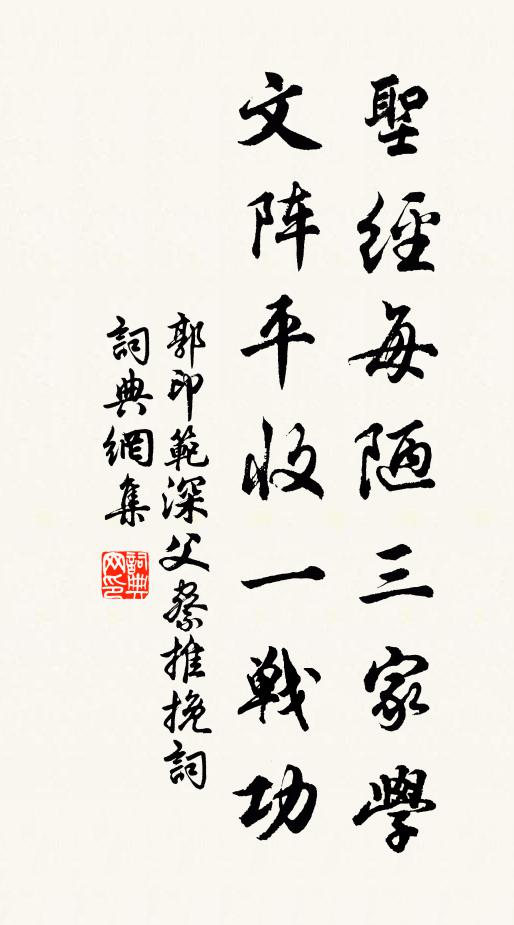 聖經每陋三家學
文阵平收一戰功
郭印範深父察推挽詞
詞典網集
詞典
网印